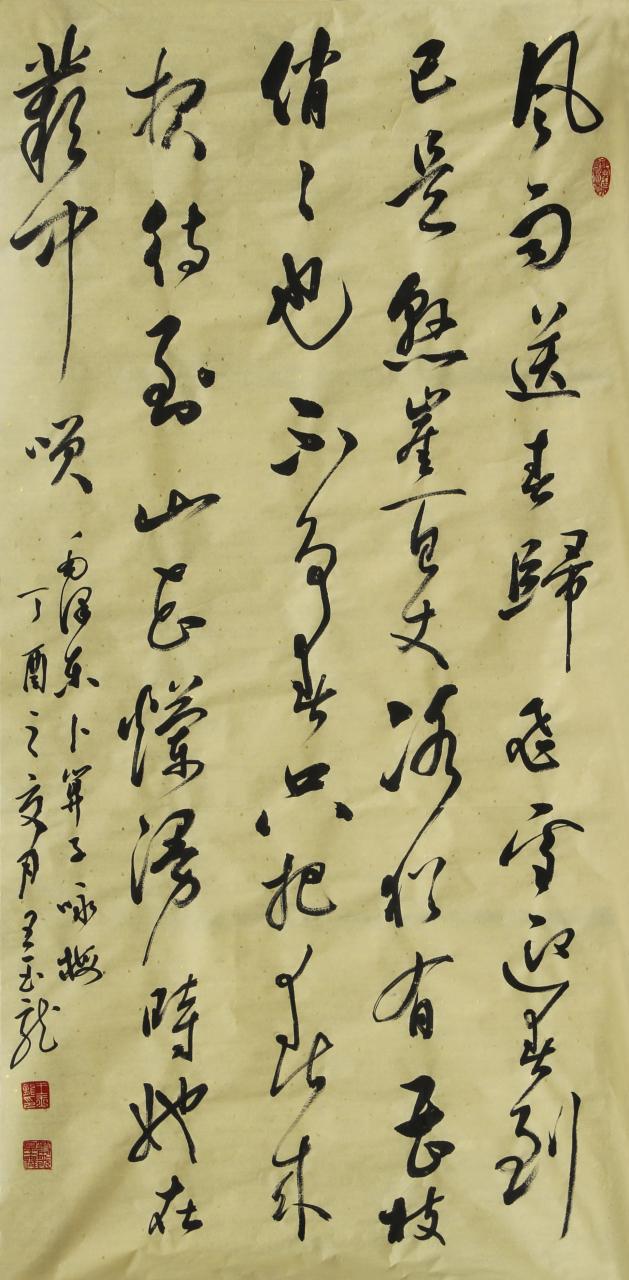 风雨送春歸飛雪迎春到
已是懸崖百丈冰猶有花枝
俏〻也不争春只把春来
报待到山花爛漫時她在
叢中 笑
毛澤东卜算子咏梅
丁酉之夏月王玉龙